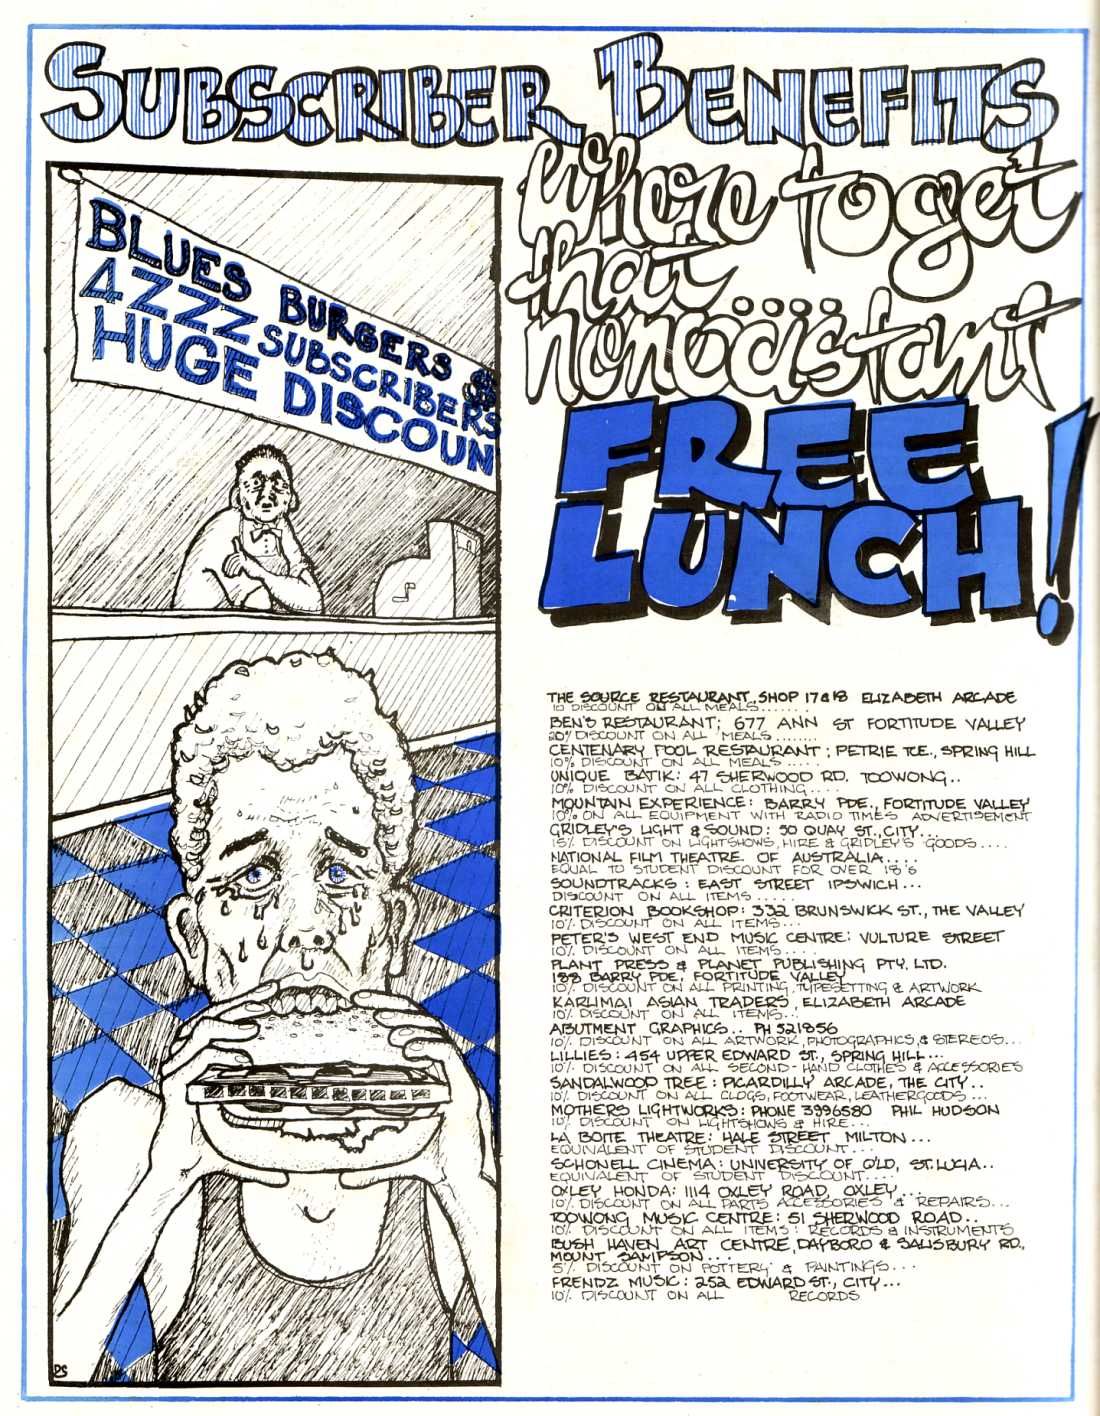 SUBSCRIBER BENEFITS
Where to get
that....
nonexistant
FREE
LUNCH!
BLUES BURGERS $
4ZZZ SUBSCRIBERS
HUGE DISCOUN
THE SOURCE RESTAURANT, SHOP 17&18 ELIZABETH ARCADE
10 DISCOUNT ON ALL MEALS.......
BEN'S RESTAURANT; 677 ANN ST FORTITUDE VALLEY
20% DISCOUNT ON ALL MEALS........
CENTENARY POOL RESTAURANT; PETRIE TCE., SPRING HILL
10% DISCOUNT ON ALL MEALS.....
UNIQUE BATIK: 47 SHERWOOD RD. TOOWONG..
10% DISCOUNT ON ALL CLOTHING....
MOUNTAIN EXPERIENCE: BARRY PDE., FORTITUDE VALLEY
10% ON ALL EQUIPMENT WITH RADIO TIMES ADVERTISEMENT
GRIDLEY'S LIGHT & SOUND: 30 QUAY ST., CITY...
15% DISCOUNT ON LIGHTSHOWS, HIRE & GRIDLEY'S GOODS....
NATIONAL FILM THEATRE OF AUSTRALIA....
EQUAL TO STUDENT DISCOUNT FOR OVER 18'S
SOUNDTRACKS: EAST STREET IPSWICH...
DISCOUNT ON ALL ITEMS.....
CRITERION BOOKSHOP: 332 BRUNSWICK ST., THE VALLEY
10% DISCOUNT ON ALL ITEMS...
PETER'S WEST END MUSIC CENTRE: VULTURE STREET
10% DISCOUNT ON ALL ITEMS....
PLANT PRESS & PLANET PUBLISHING PTY. LTD.
188 BARRY PDE, FORTITUDE VALLEY
10% DISCOUNT ON ALL PRINTING, TYPESETTING & ARTWORK
KARUMAI ASIAN TRADERS, ELIZABETH ARCADE
10% DISCOUNT ON ALL ITEMS...
ABUTMENT GRAPHICS.. PH 521856
10% DISCOUNT ON ALL ARTWORK, PHOTOGRAPHICS, & STEREOS...
LILLIES: 454 UPPER EDWARD ST., SPRING HILL...
10% DISCOUNT ON ALL SECOND-HAND CLOTHES & ACCESSORIES
SANDALWOOD TREE: PICARDILLY ARCADE, THE CITY..
10% DISCOUNT ON ALL CLOGS, FOOTWEAR, LEATHERGOODS...
MOTHERS LIGHTWORKS: PHONE 3996580 PHIL HUDSON
10% DISCOUNT ON LIGHTSHOWS & HIRE...
LA BOITE THEATRE: HALE STREET MILTON...
EQUIVALENT OF STUDENT DISCOUNT...
SCHONELL CINEMA: UNIVERSITY OF Q'LD, ST. LUCIA..
EQUIVALENT OF STUDENT DISCOUNT....
OXLEY HONDA: 1114 OXLEY ROAD, OXLEY...
10% DISCOUNT ON ALL PARTS ACCESSORIES & REPAIRS...
TOOWONG MUSIC CENTRE: 51 SHERWOOD ROAD..
10% DISCOUNT ON ALL ITEMS: RECORDS & INSTRUMENTS
BUSH HAVEN ART CENTRE, DAYBORO & SALISBURY RD,
MOUNT SAMPSON...
5% DISCOUNT ON POTTERY & PAINTINGS...
FRENDZ MUSIC: 252 EDWARD ST., CITY...
10% DISCOUNT ON ALL RECORDS
DS